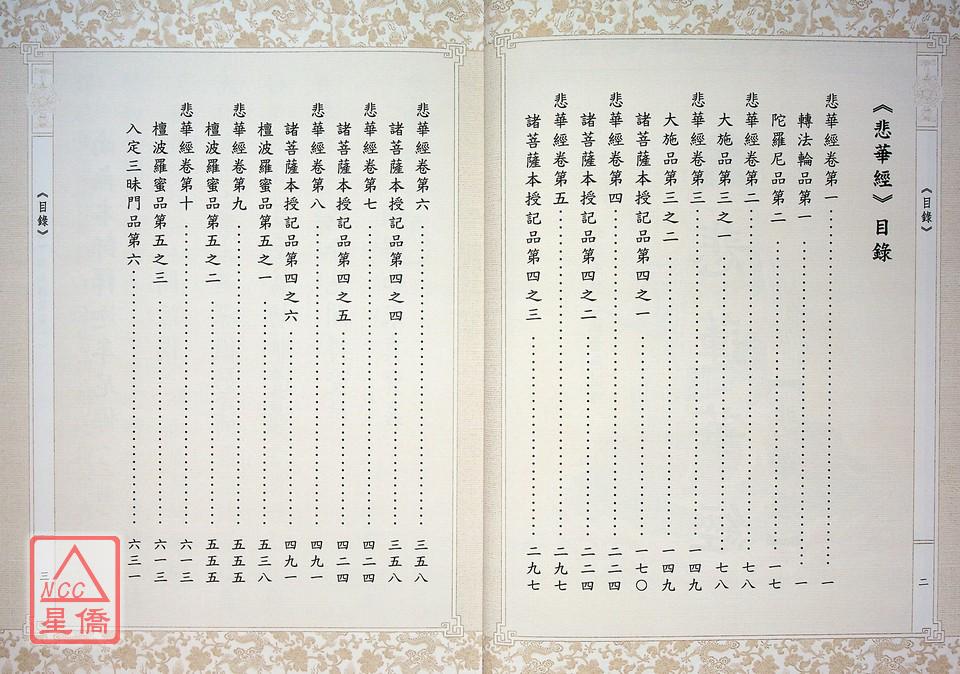 《悲華經》目錄
悲華經卷第一……一
轉法輪品第一……一
陀羅尼品第二……一七
悲華經卷第二……七八
大施品第三之一……七八
悲華經卷第三……一四九
大施品第三之二……一四九
諸菩薩本授記品第四之一……一七〇
悲華經卷第四……二二四
諸菩薩本授記品第四之二……二二四
悲華經卷第五……二九七
諸菩薩本授記品第四之三……二九七
《目錄》
二
悲華經卷第六……三五八
諸菩薩本授記品第四之四……三五八
悲華經卷第七……四二四
諸菩薩本授記品第四之五……四二四
悲華經卷第八……四九一
諸菩薩本授記品第四之六……四九一
檀波羅蜜品第五之一……五三八
悲華經卷第九……五五五
檀波羅蜜品第五之二……五五五
悲華經卷第十……六一三
檀波羅蜜品第五之三……六一三
入定三昧門品第六……六三一
《目錄》
三
NCC
星僑